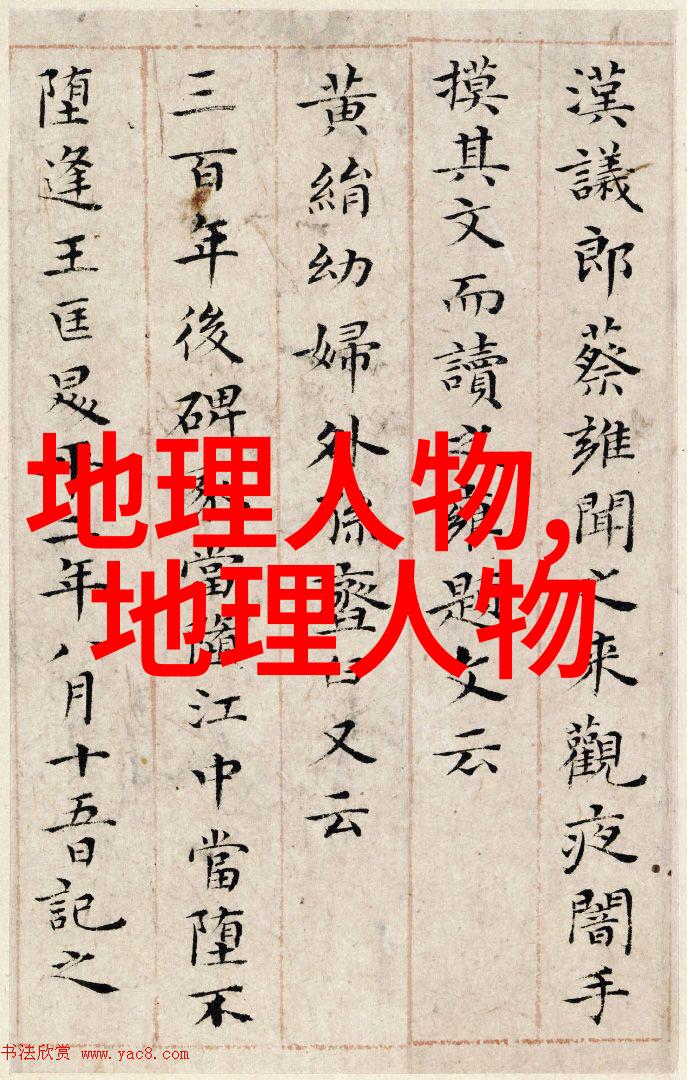 漢議郎蔡雍聞之來觀夜闇手
摸其文而讀之雍題文云
黃絹幼婦外孫臼又云
三百年後碑冢當江中當堕不
堕逢王匡二年八月十五日記之
地理人物,
地理人物
书法欣赏 www.yac8.com